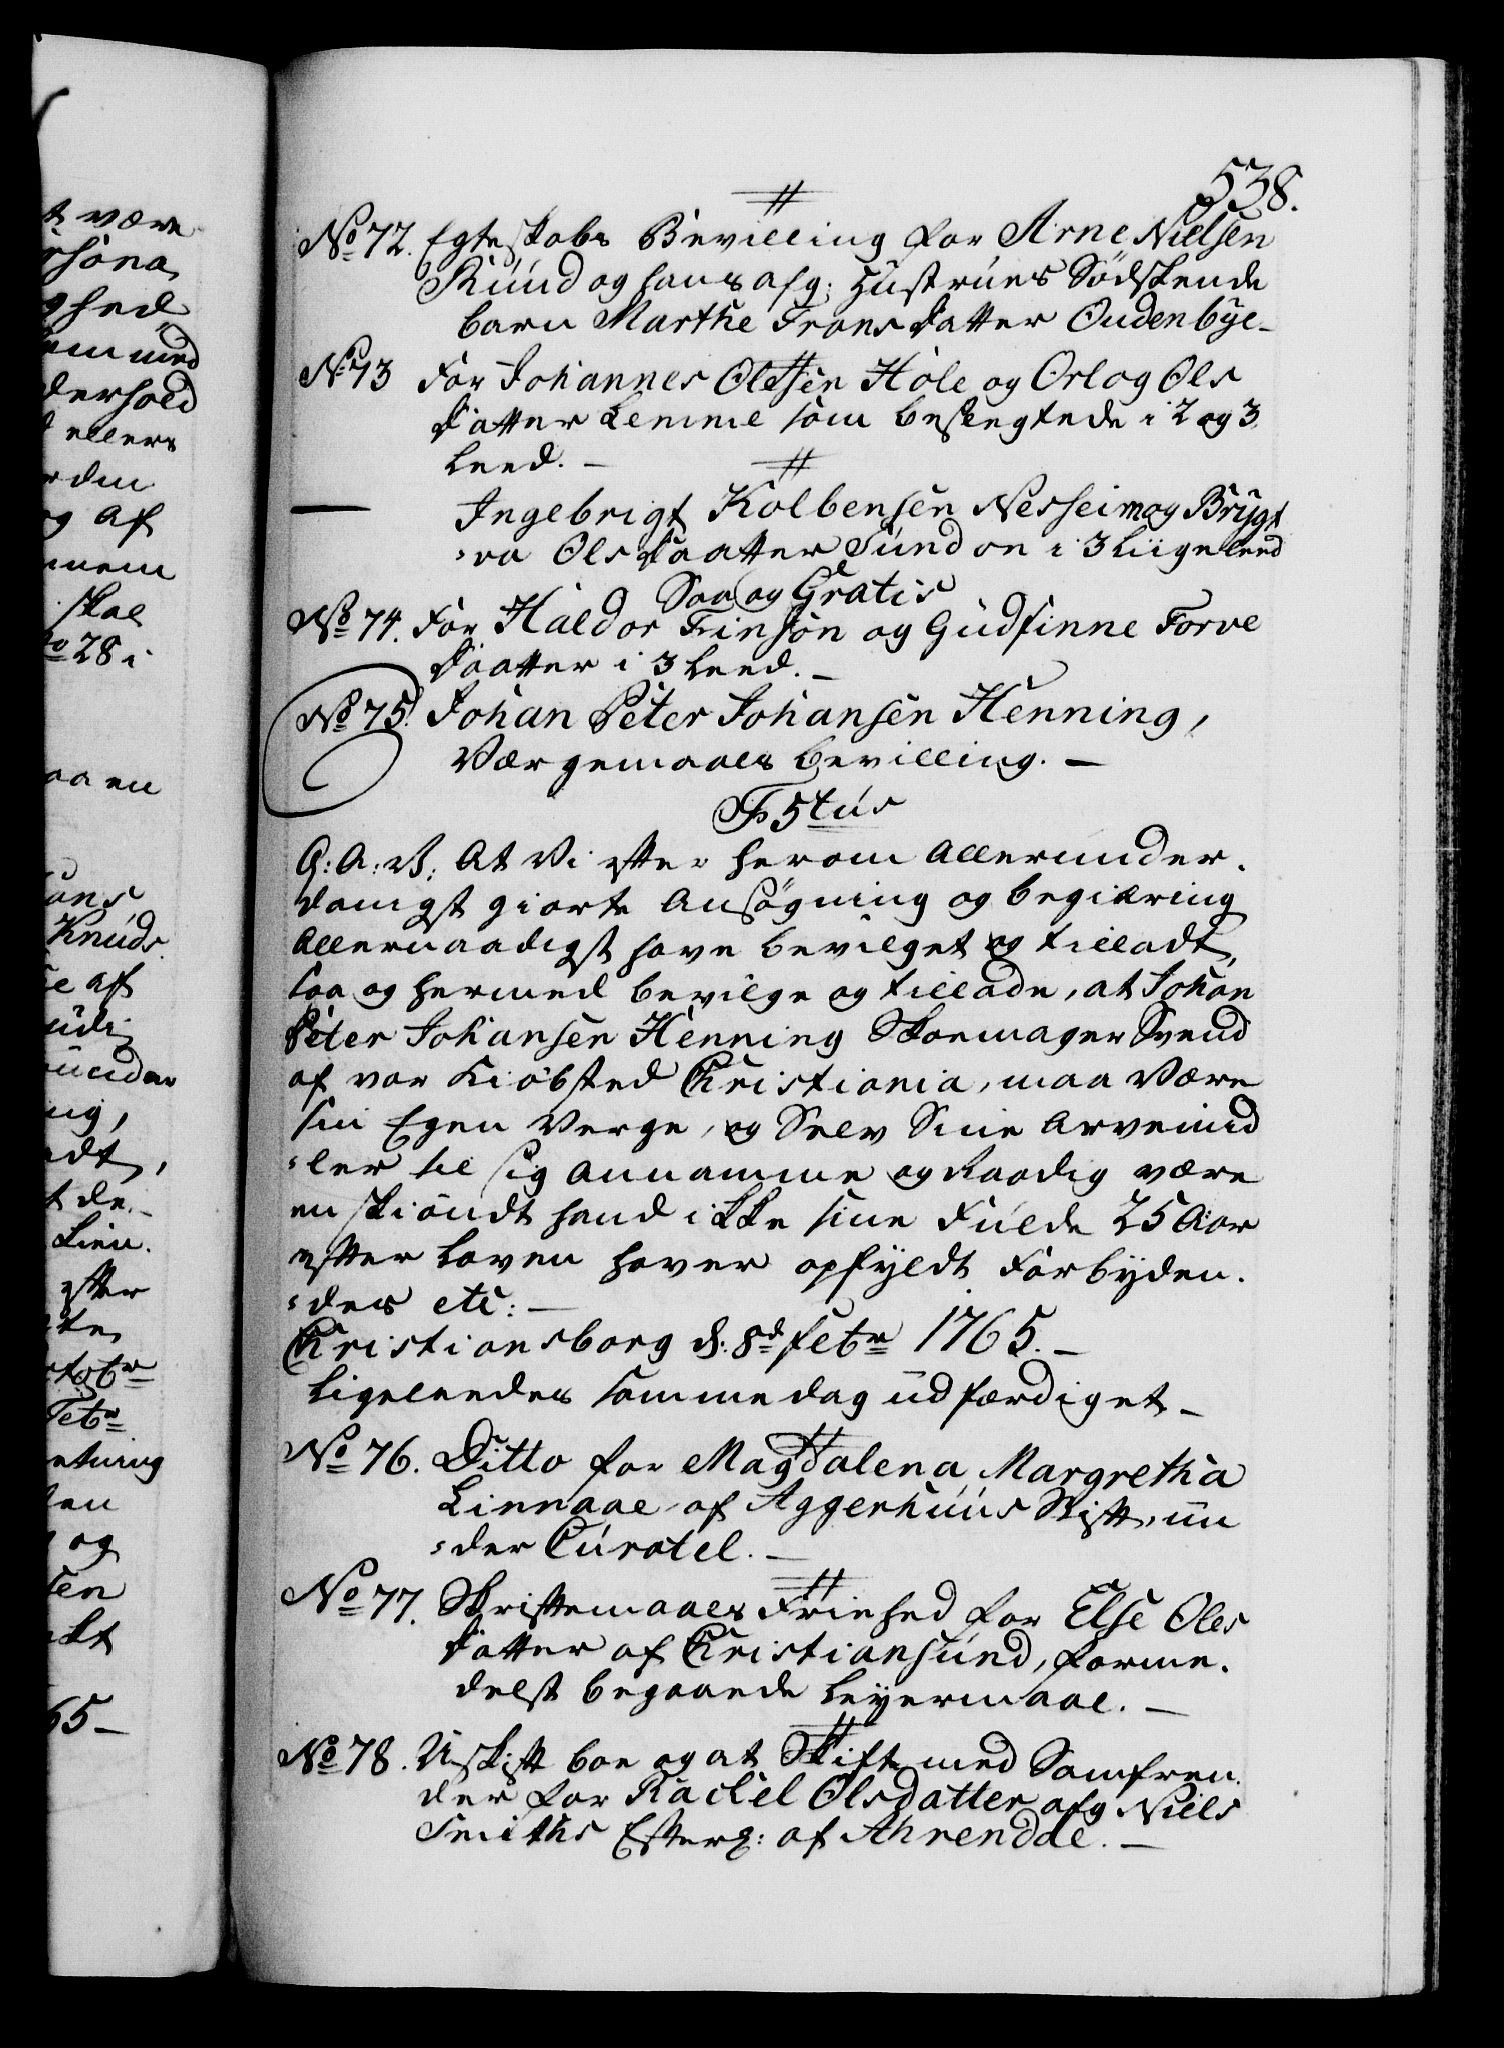 538.
No 72. Egteskabs Bevilling for Arne Nielsen
Rúúd og hans afg: Hústrúes Södskende
barn Marthe Fransdatter Oudenbÿe-
No 73 For Johannes Olessen Hole og Orlog Ols
datter Lemme som beslegtede i 2 og 3
Leed. -
Ingebrigt Kolbensen Nesheim og Brÿgt
:va Olsdaatter Súnd on i 3 Liige Leed
Saa og Gratis
No 74. For Haldor Finsön og Gúdfinne Torve
daatter i 3 Leed. -
No 75. Johan Peter Johansen Henning,
Værgemaals bevilling. -
F5tús
G: A: V: At Vi efter herom Allerunder-
danigst giorte Ansögning og begiæring
Allernaadigst have bevilget og tilladt,
saa og hermed bevilge og tillade, at Johan
Peter Johansen Henning Skoemager Svend
af vor Kiöbsted Christiania, maa Være
sin Egen Verge, og Selv Sine Arvemid
:ler til sig annamme og Raadig være
enskiöndt hand ikke sine Fúlde 25 Aar
efter Loven haver opfyldt Forbÿden-
:des etc: -
Christiansborg d: 8d Febr 1765. -
Ligeleedes samme dag udfærdiget -
No 76. Ditto for Magdalena Margretha
Linnaae af Aggerhúús Stift, un
:der Cúratel. -
No 77. Skriftemaals Friehed for Else Ols
datter af Christiansúnd, forme-
delst begaaende Leÿermaal. -
No 78. Uskift boe og at Skifte med Samfren-
der for Rachel Olsdatter afg Niels
Smiths Efterl: af Ahrendal. -
t være
ghed
om med
derhold
ellers
den
og Af
skal
No 28 i
aa en
Knúds
te af
ing,
adt,
t de-
Lien.
efter
Febr
ten
og
sen
65-